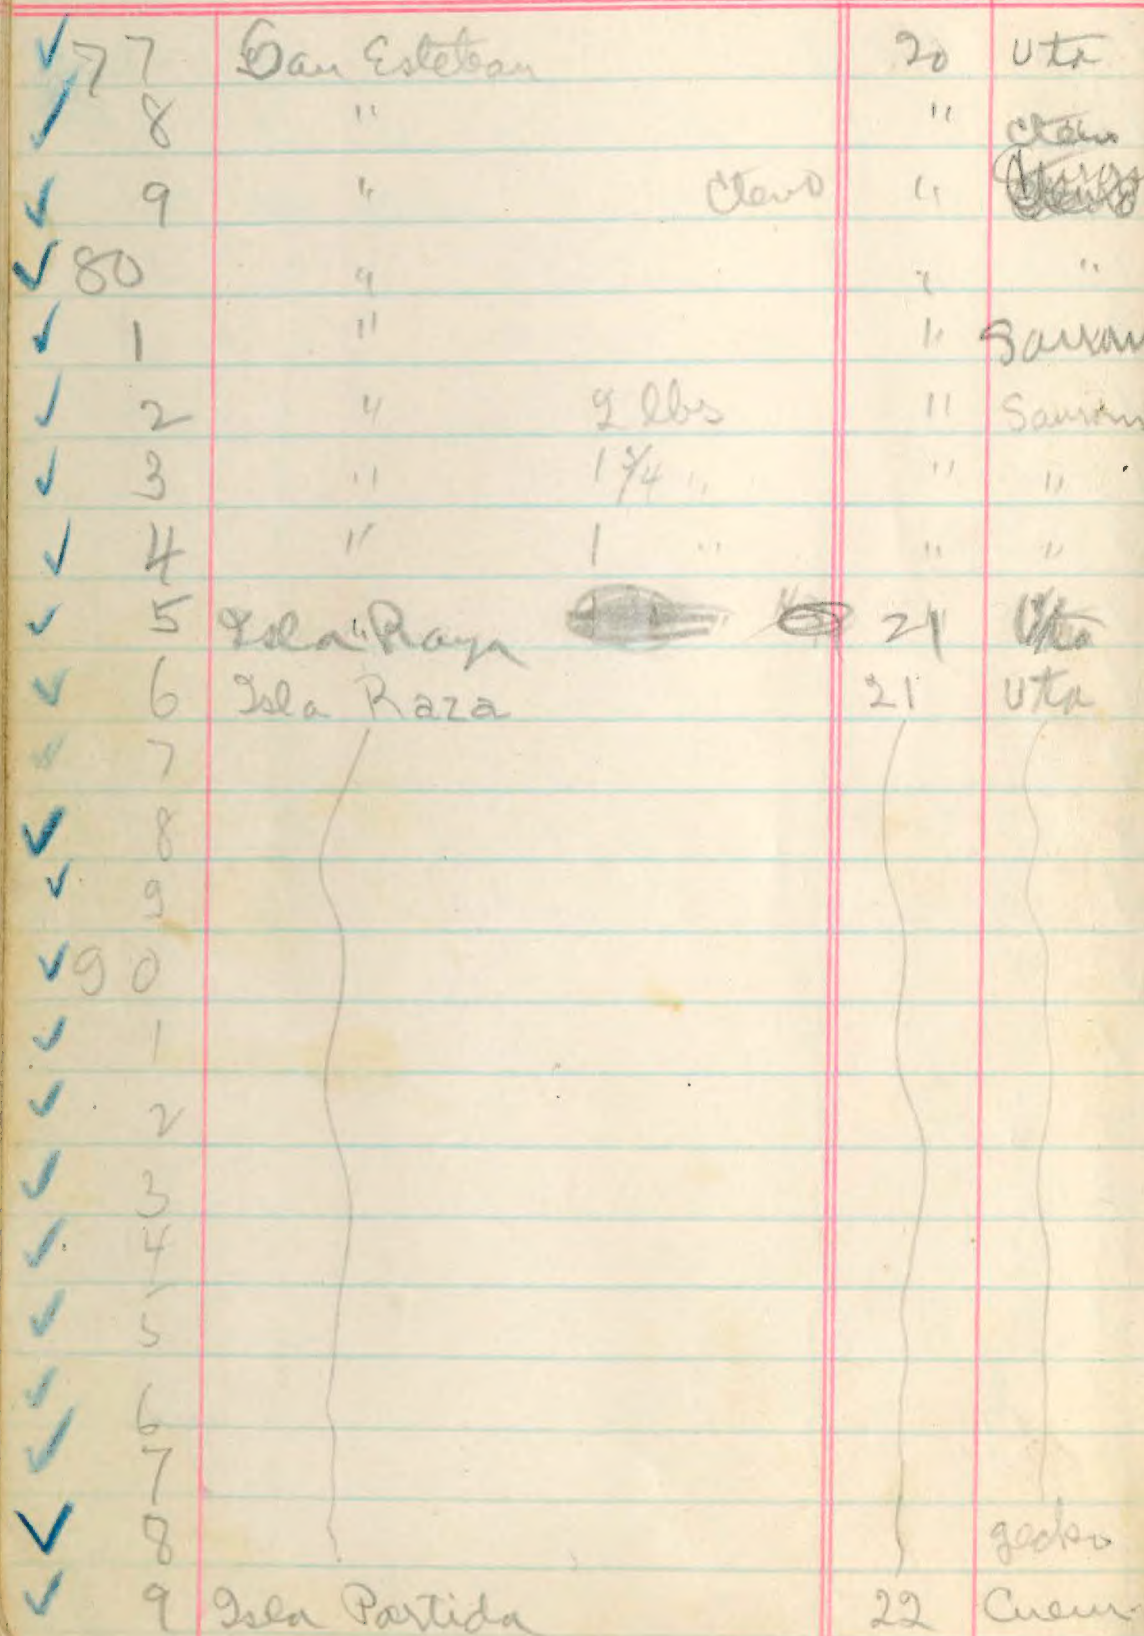 ✓ 77 San Esteban 20 Uta
✓ 8 " " Cteno
✓ 9 " Cteno "
✓ 80 " " "
✓ 1 " " Saurom
✓ 2 " 2 lbs " Saurom
✓ 3 " 1 3/4 " " "
✓ 4 " 1 " " "
✓ 5 Isla Raya 21 Uta
✓ 6 Isla Raza 21 Uta
✓ 7
✓ 8
✓ 9
✓ 90
✓ 1
✓ 2
✓ 3
✓ 4
✓ 5
✓ 6
✓ 7
✓ 8 gecko
✓ 9 Isla Partida 22 Cnem-